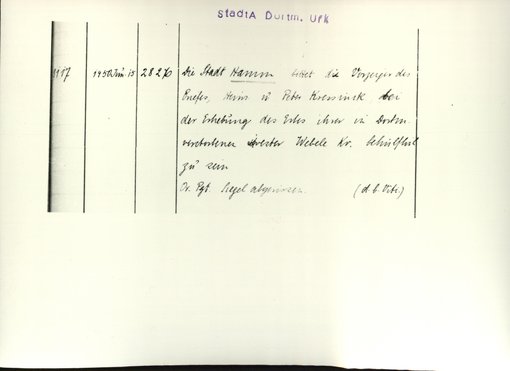 StadtA Dortm. Urk
1117 1450 Jun 15 2827b Die Stadt Hamm bittet die Vorzeiger des
Briefes, Heins u Peter Kressinck, bei
der Erhebung des Erbes ihrer in Dortm.
verstorbenen Schwester Webele Kr. behülflich
zu sein
Or. Pgt. Siegel abgerissen. (d. b. Urk.)